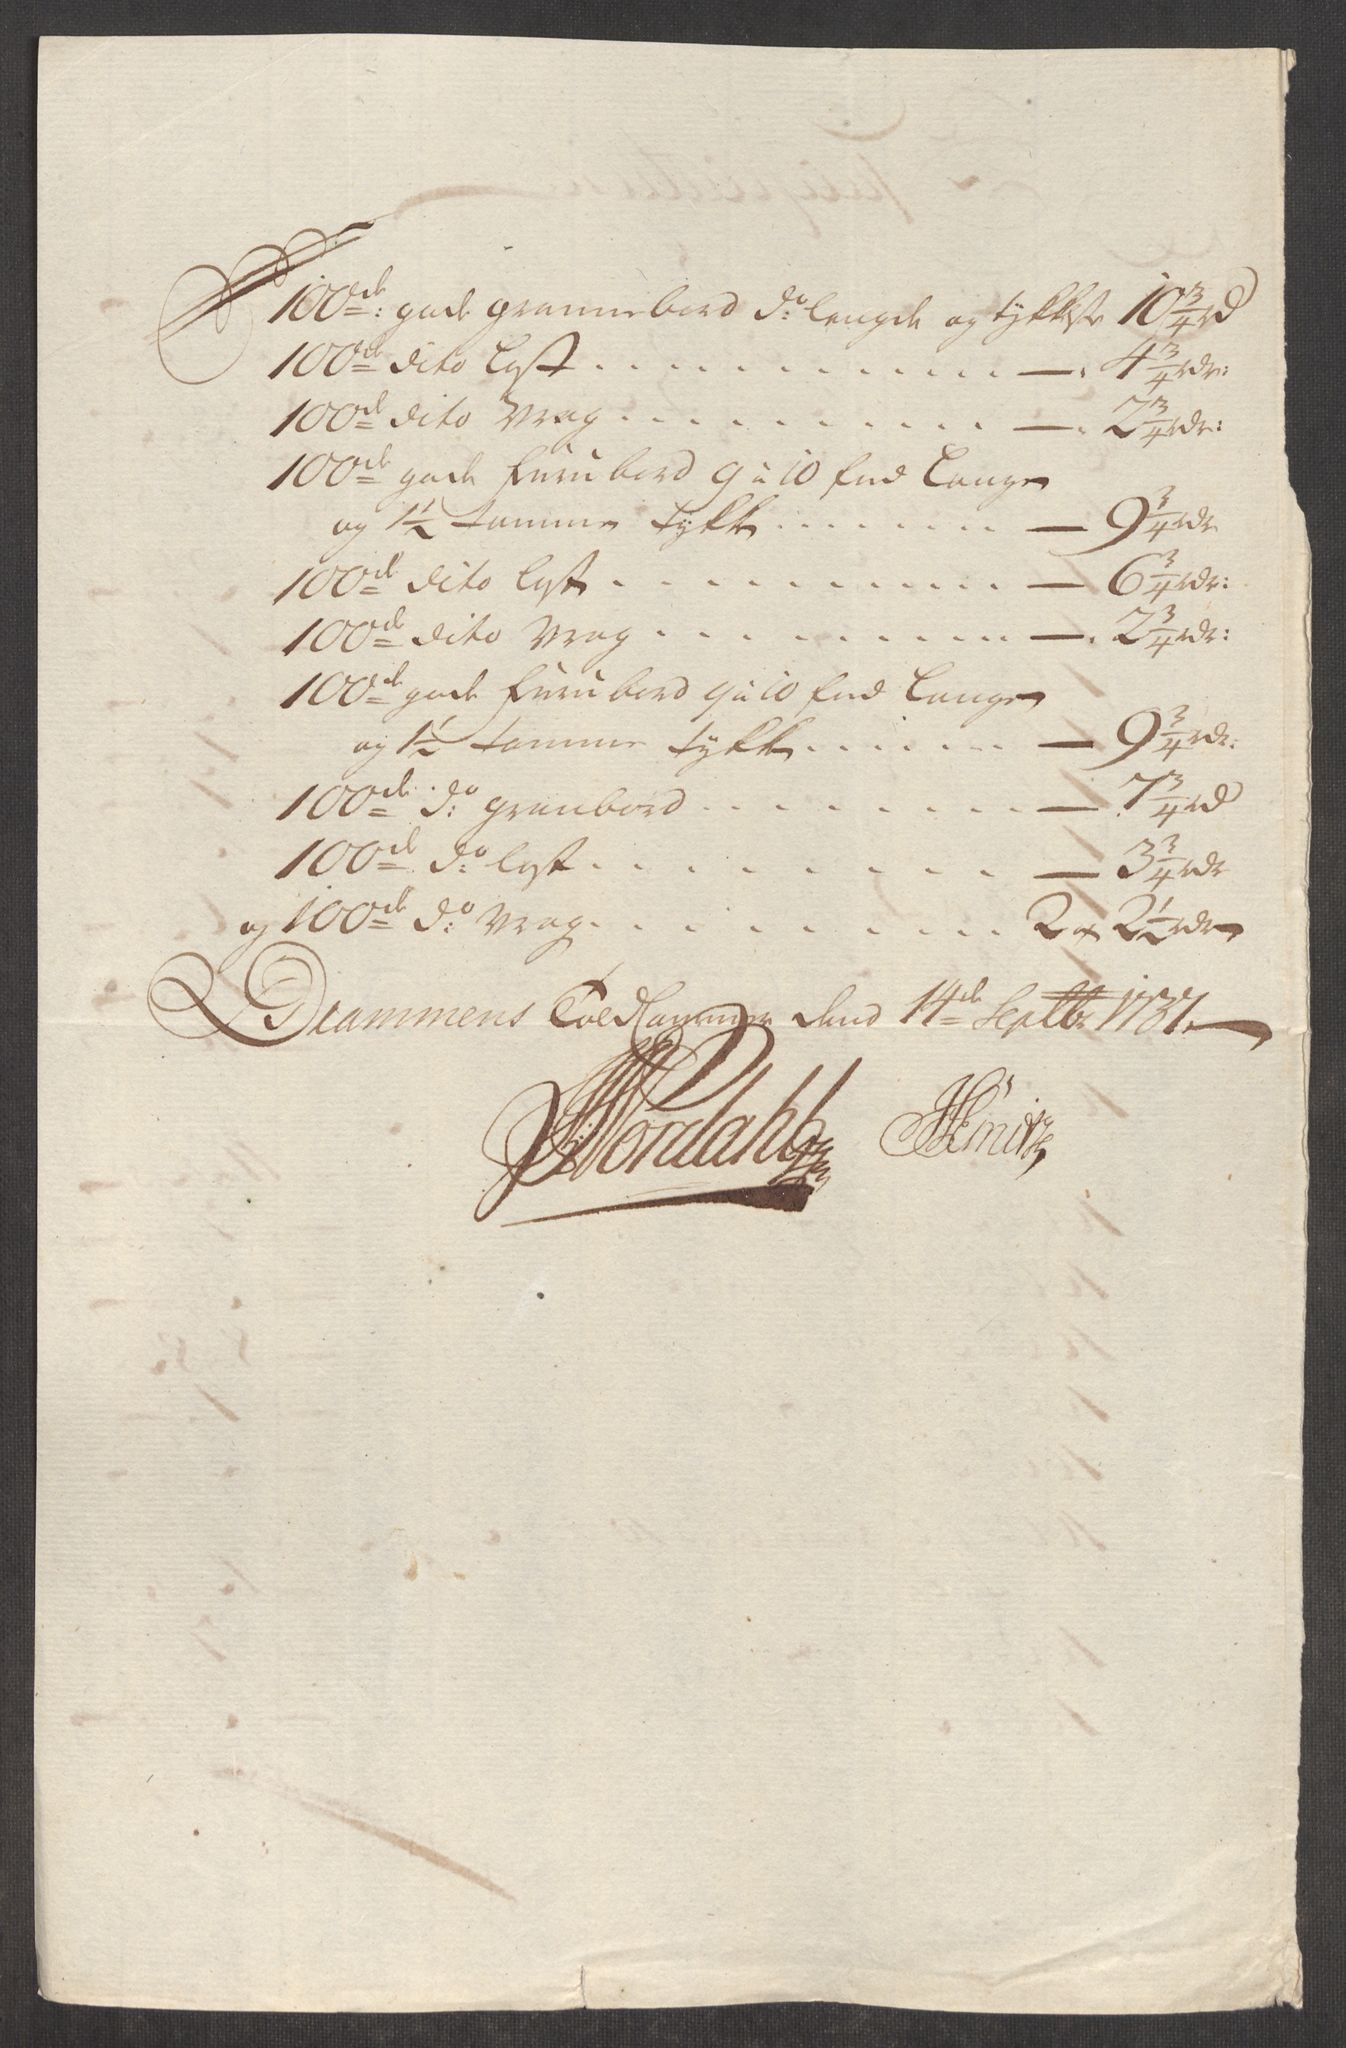 100de: gode grannebord do: lengde og tykkelse 10 3/4 rd
100de dito Lest . . . . . . . . . . . . — . 4 3/4 rdr:
100de dito Vrag . . . . . . . . . . . — . 2 3/4 rdr:
100de gode furubord 9 à 10 fod Lange
og 1 1/2 tomme tykke . . . . . . . . — 9 3/4 rdr
100de dito Lest . . . . . . . . . . — 6 3/4 rdr:
100de dito Vrag . . . . . . . . . — . 2 3/4 rdr:
100de gode furubord 9 à 10 fod Lange
og 1 1/2 tomme tykke . . . . . . . — 9 3/4 rdr:
100de do: granbord . . . . . . . . . — 7 3/4 rd
100de do: lest . . . . . . . . . — 3 3/4 rdr
og 100de do: Vrag . . . . . . . . . 2 à 2 1/2 rdr
Drammens Told Cammer dend 14de Septbr: 1737.
Nordahl